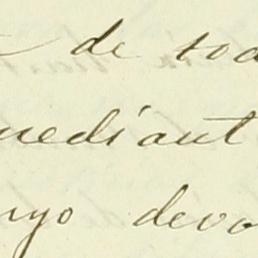 de tod
mediant
uyo devo